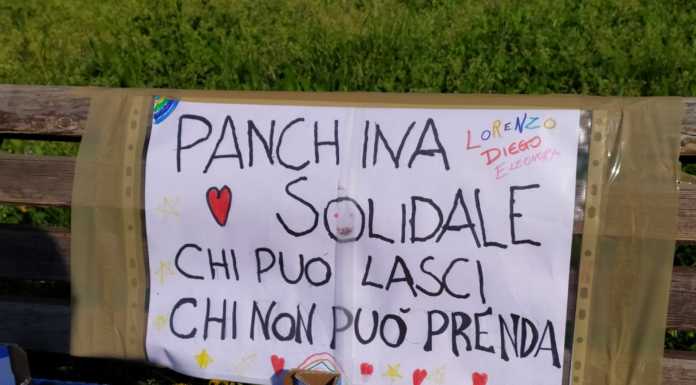 PANCHINA
LORENZO
DIEGO
ELEONORA
SOLIDALE
CHI PUO LASCI
CHI NON PUÒ PRENDA